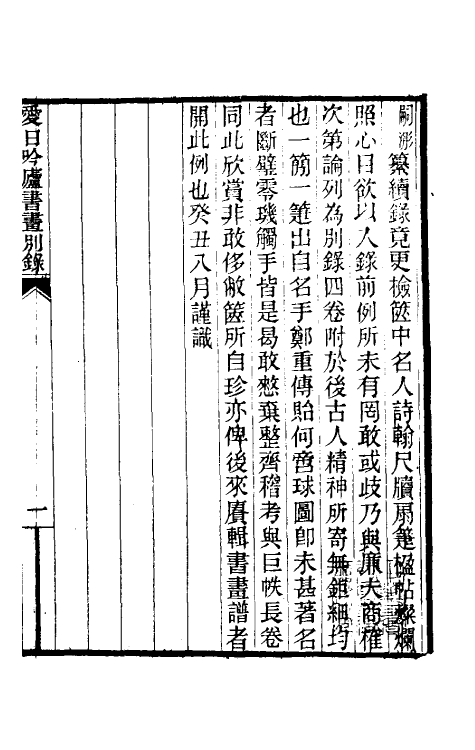 嗣浵纂續錄竟更檢篋中名人詩翰尺牘扇箑楹帖燦爛
照心目欲以人錄前例所未有罔敢或歧乃與廉夫商榷
次第論列為別錄四卷附於後古人精神所寄無鉅細均
也一箚一箑出自名手鄭重傳貽何啻球圖卽未甚著名
者斷璧零璣觸手皆是曷敢慭棄整齊稽考與巨帙長卷
同此欣賞非敢侈敝篋所自珍亦俾後來賡輯書畫譜者
開此例也癸丑八月謹識
愛日吟廬書畫別錄
一